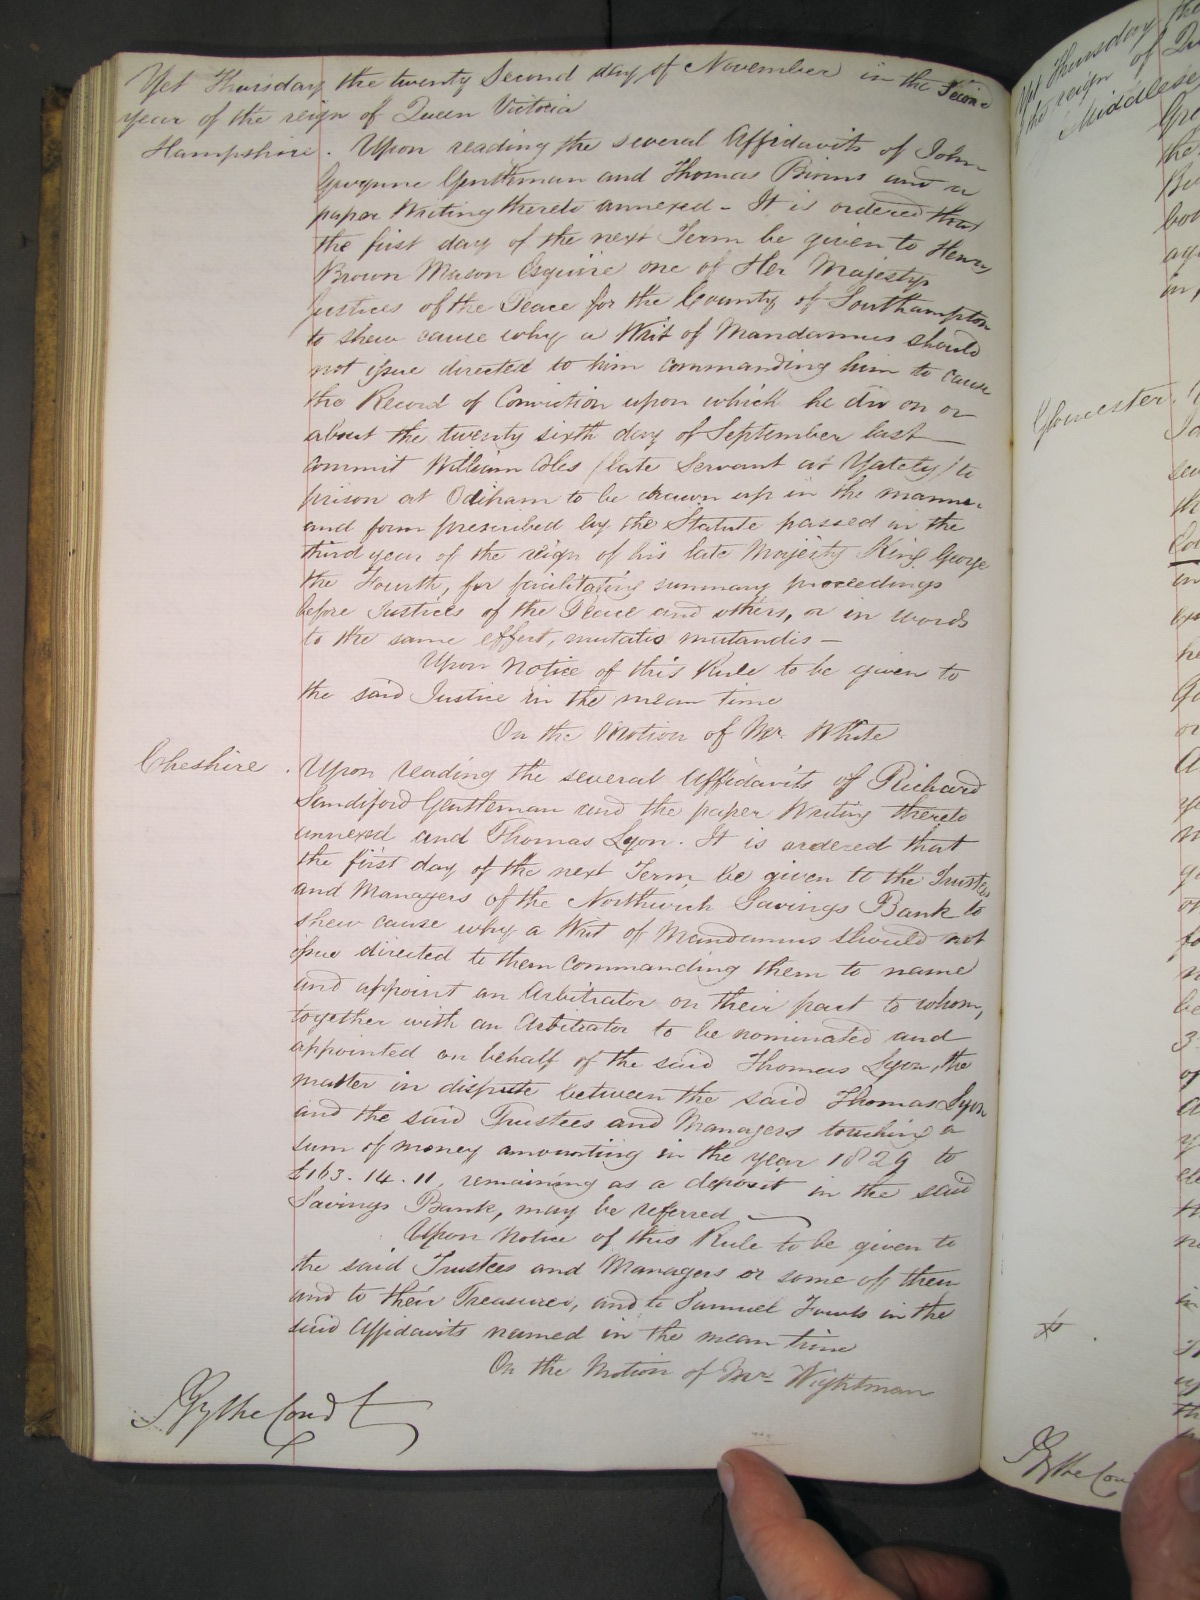 Yet Thursday the twenty Second day of November in the Second
year of the reign of Queen Victoria
Hampshire. Upon reading the several Affidavits of John
Gwynne Gentleman and Thomas Binns and a
paper Writing thereto annexed - It is ordered that
the first day of the next Term be given to Henry
Brown Mason Esquire one of Her Majestys
Justices of the Peace for the County of Southampton
to shew cause why a Writ of Mandamus should
not issue directed to him commanding him to cause
the Record of Conviction upon which he did on or
about the twenty sixth day of September last
commit William Coles (late Servant at Yately) to
prison at Odiham to be drawn up in the manner
and form prescribed by the Statute passed in the
third year of the reign of his late Majesty King George
the Fourth, for facilitating summary proceedings
before Justices of the Peace and others, or in words
to the same effect, mutatis mutandis -
Upon Notice of this Rule to be given to
the said Justice in the mean time
On the Motion of Mr. White
Cheshire. Upon reading the several Affidavits of Richard
Sandiford Gentleman and the paper Writing thereto
annexed and Thomas Lyon. It is ordered that
the first day of the next Term be given to the Trustees
and Managers of the Northwich Savings Bank to
shew cause why a Writ of Mandamus should not
issue directed to them commanding them to name
and appoint an Arbitrator on their part to whom,
together with an Arbitrator to be nominated and
appointed on behalf of the said Thomas Lyon, the
matter in dispute between the said Thomas Lyon
and the said Trustees and Managers touching a
sum of money amounting in the year 1829 to
£163.14.11, remaining as a deposit in the said
Savings Bank, may be referred
Upon Notice of this Rule to be given to
the said Trustees and Managers or some of them
and to their Treasurer, and to Samuel in the
said Affidavits named in the mean time
On the Motion of Mr. Wightman
By the Court
Yet Thursday the
the reign of Qu
Middlesex
Gloucester.
By the Cou